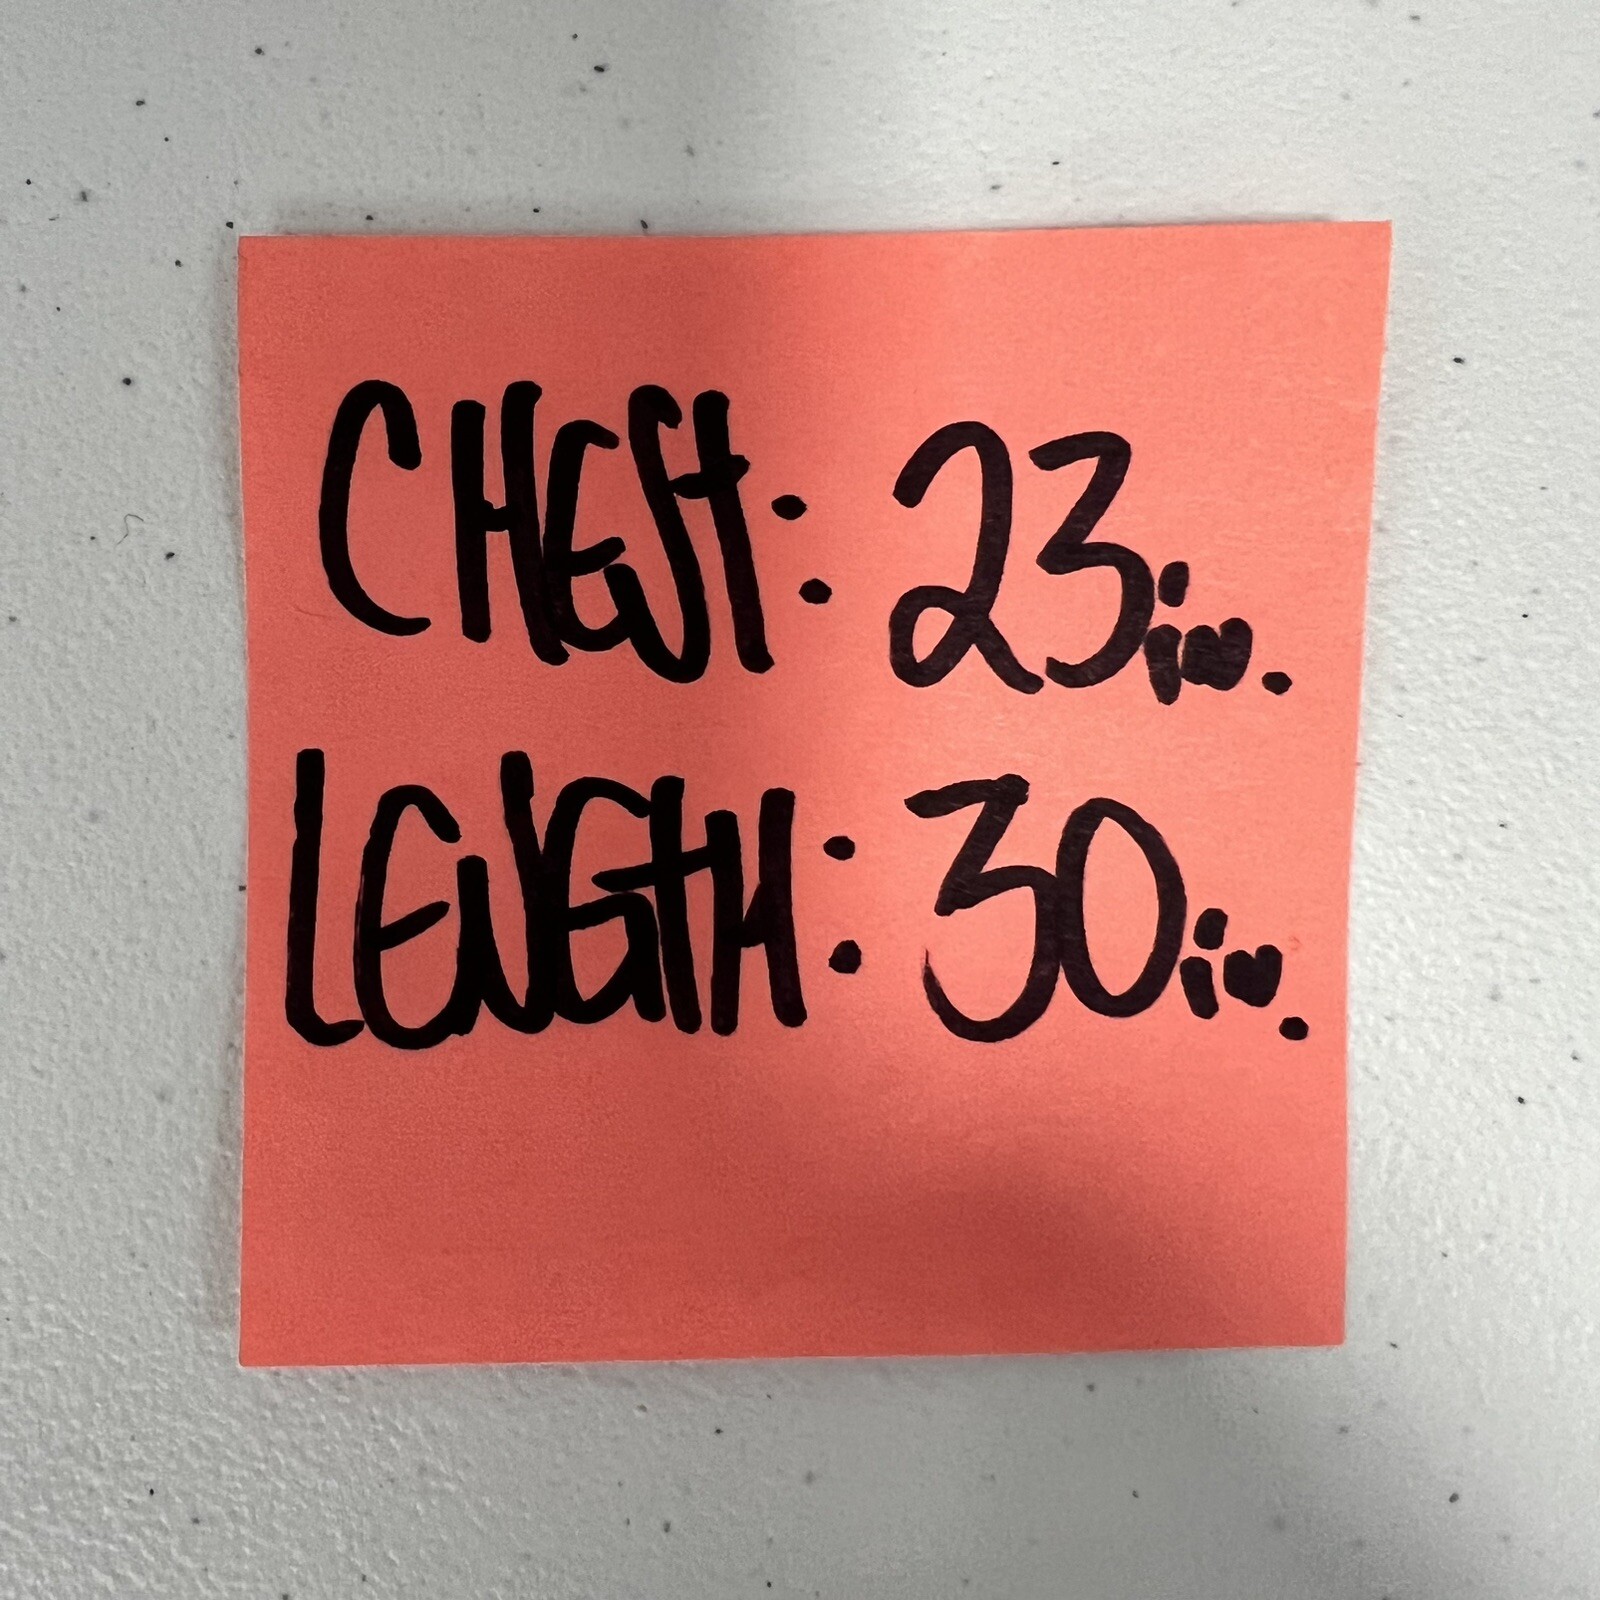 CHEST: 23in.
LENGTH: 30in.